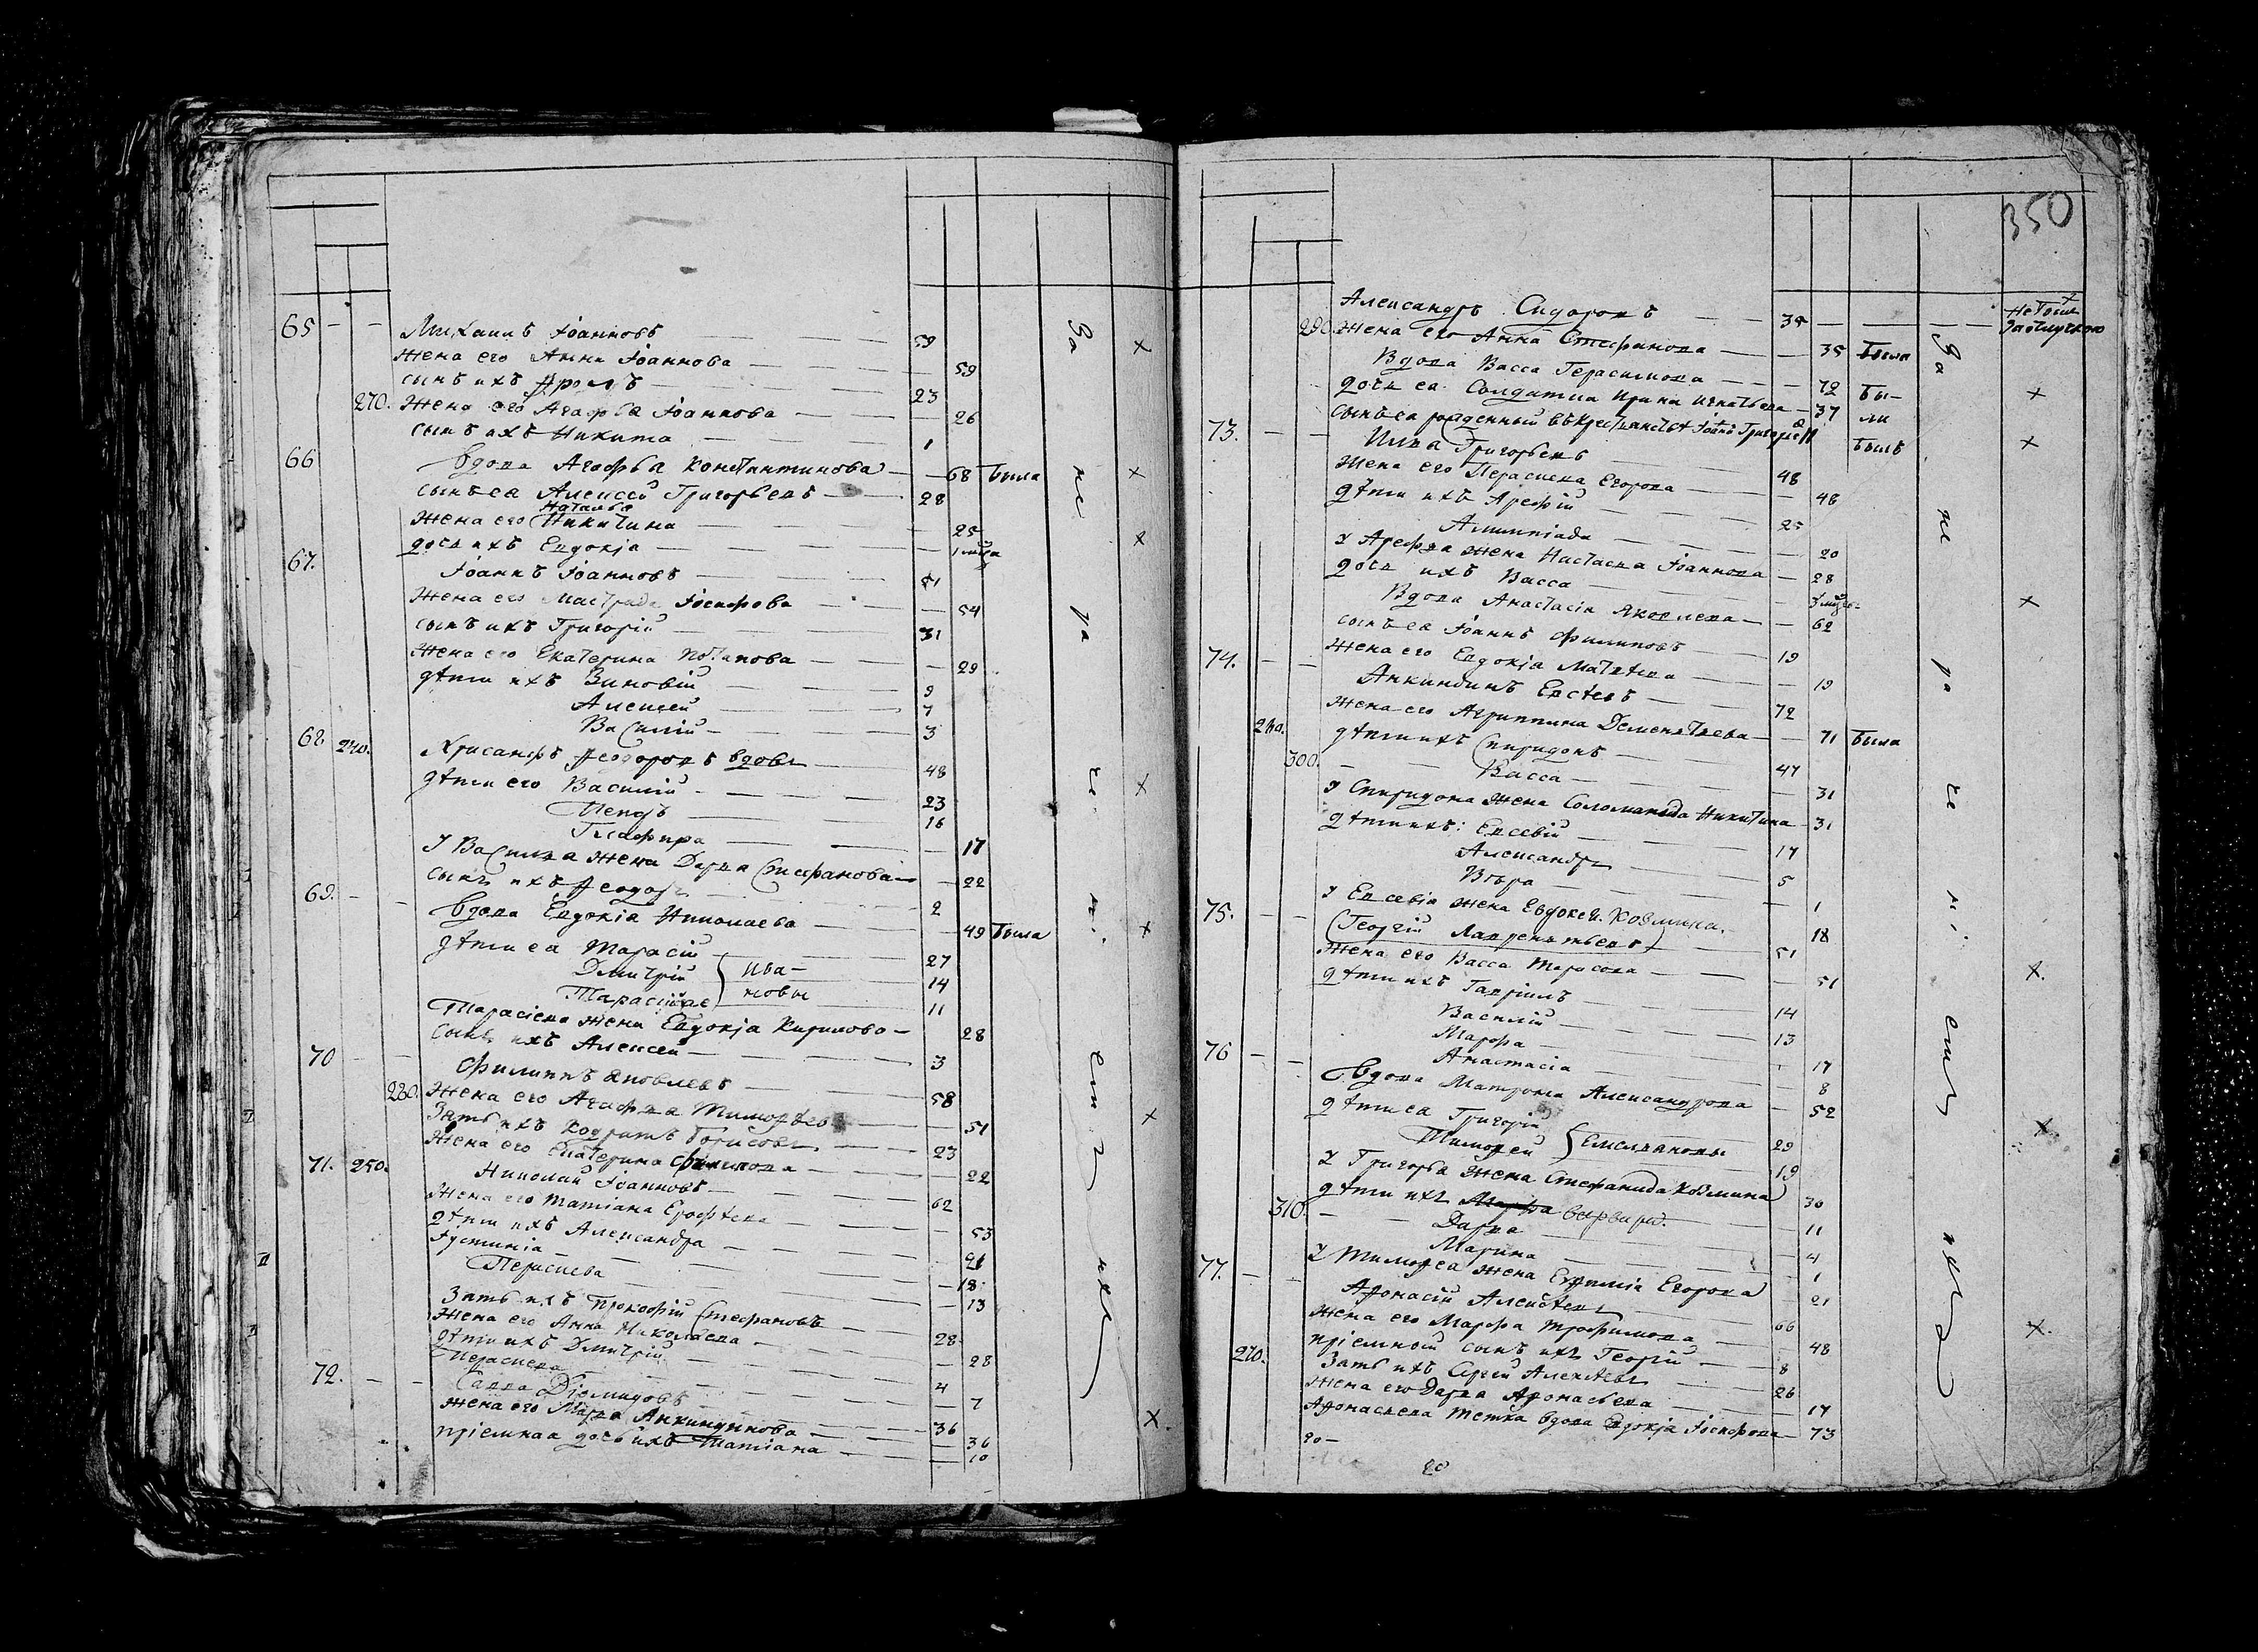 65 - - Михаилъ Іоанновъ 59
жена его Анна Іоаннова 59
сынъ ихъ Фролъ 23
270. жена его Агафья Іоаннова 26
сынъ ихъ Никита 1
66 вдова Агафья Константинова 68 была
сынъ ея Алексей Григорьевъ 28
Наталья
жена его Никитина 25
дочь ихъ Евдокія 1
67. Іоаннъ Іоанновъ 51
жена его Іосифова 54
сынъ ихъ Григорій 31
жена его Екатерина Потапова 29
дѣти ихъ Зиновій 9
Алексей 7
Василій 3
68 240. Хрисанфъ Ѳеодоровъ вдовъ 48
дѣти его Василій 23
Петръ 16
Глафира 17
У Василья жена Дарья Стефанова 22
сынъ ихъ Ѳеодоръ 2
69. - - вдова Евдокія Николаева 49 была
дѣти ея Тарасій 27
Дмитрій 14
Ива-
новы
11
Тарасіева жена Евдокія Кирилова 28
сынъ ихъ Алексей 3
70 - - Филиппъ Яковлевъ 58
280. жена его Агафья 51
Зять ихъ Кодратъ Борисовъ 23
жена его Екатерина Филипова 22
71. 250. Николай Іоанновъ 62
жена его Татіана Ерофѣева 53
дѣти ихъ Александра 21
Іустинія 18
Параскева 13
Зять ихъ Прокофій Стефановъ 28
жена его Анна Николаева 28
дѣти ихъ Дмитрій 4
Параскева 7
72. - - Савва Діомидовъ 36
жена его Марья Анкиндинова 36
пріемная дочь ихъ Татіана 10
За не ра че ні ем ихъ
350
Александръ Сидоровъ 35
290. жена его Анна Стефанова 35 была
Вдова Васса Герасимова 72 бы-
дочь ея Солдатка Ирина Игнатьева 37 ли
сынъ ея Іоаннъ Григорьевъ былъ
73. - - Илья Григорьевъ 48
жена его Параскева Егорова 48
дѣти ихъ Арефій 25
Алимпіада 20
У Арефья жена Настасья Іоаннова 28
дочь ихъ Васса
Вдова Анастасія Яковлева 62
сынъ ея Іоаннъ Филиповъ 19
жена его Евдокія Матвѣева 19
74. - - Анкиндинъ Евсѣевъ 72
жена его Агриппина Дементьева 71 была
260. дѣти ихъ Спиридонъ 47
300. Васса 31
У Спиридона жена Соломанида Никитина 31
дѣти ихъ: Евсевій 17
Александръ 5
Вѣра 1
У Евсевія жена Евдокея Козмина. 18
75. - - (Георгій Лаврентьевъ) 51
жена его Васса Тарасова 51
дѣти ихъ Гавріилъ 14
Василій 13
Марфа 17
Анастасія 8
76 - - Вдова Матрона Александрова 52
дѣти ея Григорій 29
Тимофей Емельяновы 19
У Григорья жена Стефанида Козмина 30
дѣти ихъ Марфа Варвара. 11
310. Дарья 4
Марина 1
У Тимофея жена Евфимія Егорова 21
77. - - Афонасій Алексѣевъ 66
жена его Марфа Трофимова 48
пріемной сынъ ихъ Георгій 8
270. Зять ихъ Сергей Алексѣевъ 26
жена его Дарья Афонасьева 17
Афонасьева тетка вдова Евдокія Іосифова 73
За не ра че ні ем ихъ